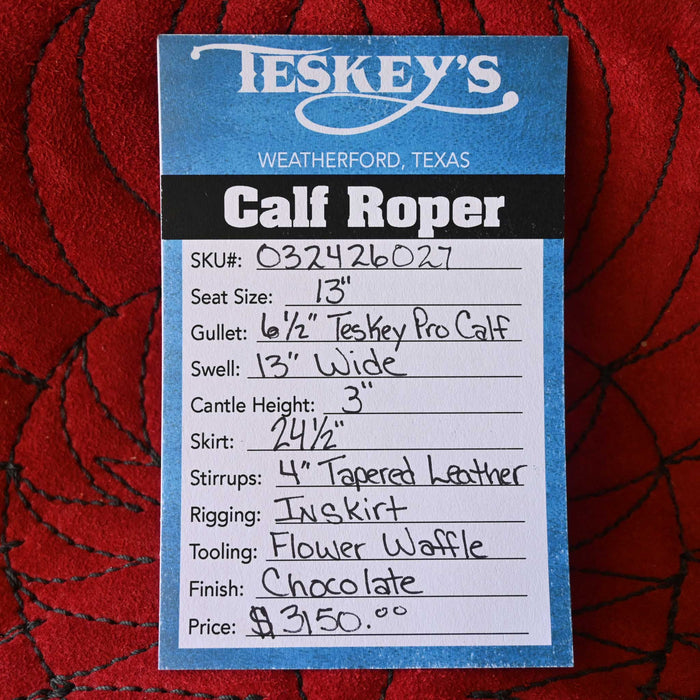 TESKEY'S
WEATHERFORD, TEXAS
Calf Roper
SKU#: 032426027
Seat Size: 13"
Gullet: 6 1/2" Teskey Pro Calf
Swell: 13" Wide
Cantle Height: 3"
Skirt: 24 1/2"
Stirrups: 4" Tapered Leather
Rigging: Inskirt
Tooling: Flower Waffle
Finish: Chocolate
Price: $3150.00